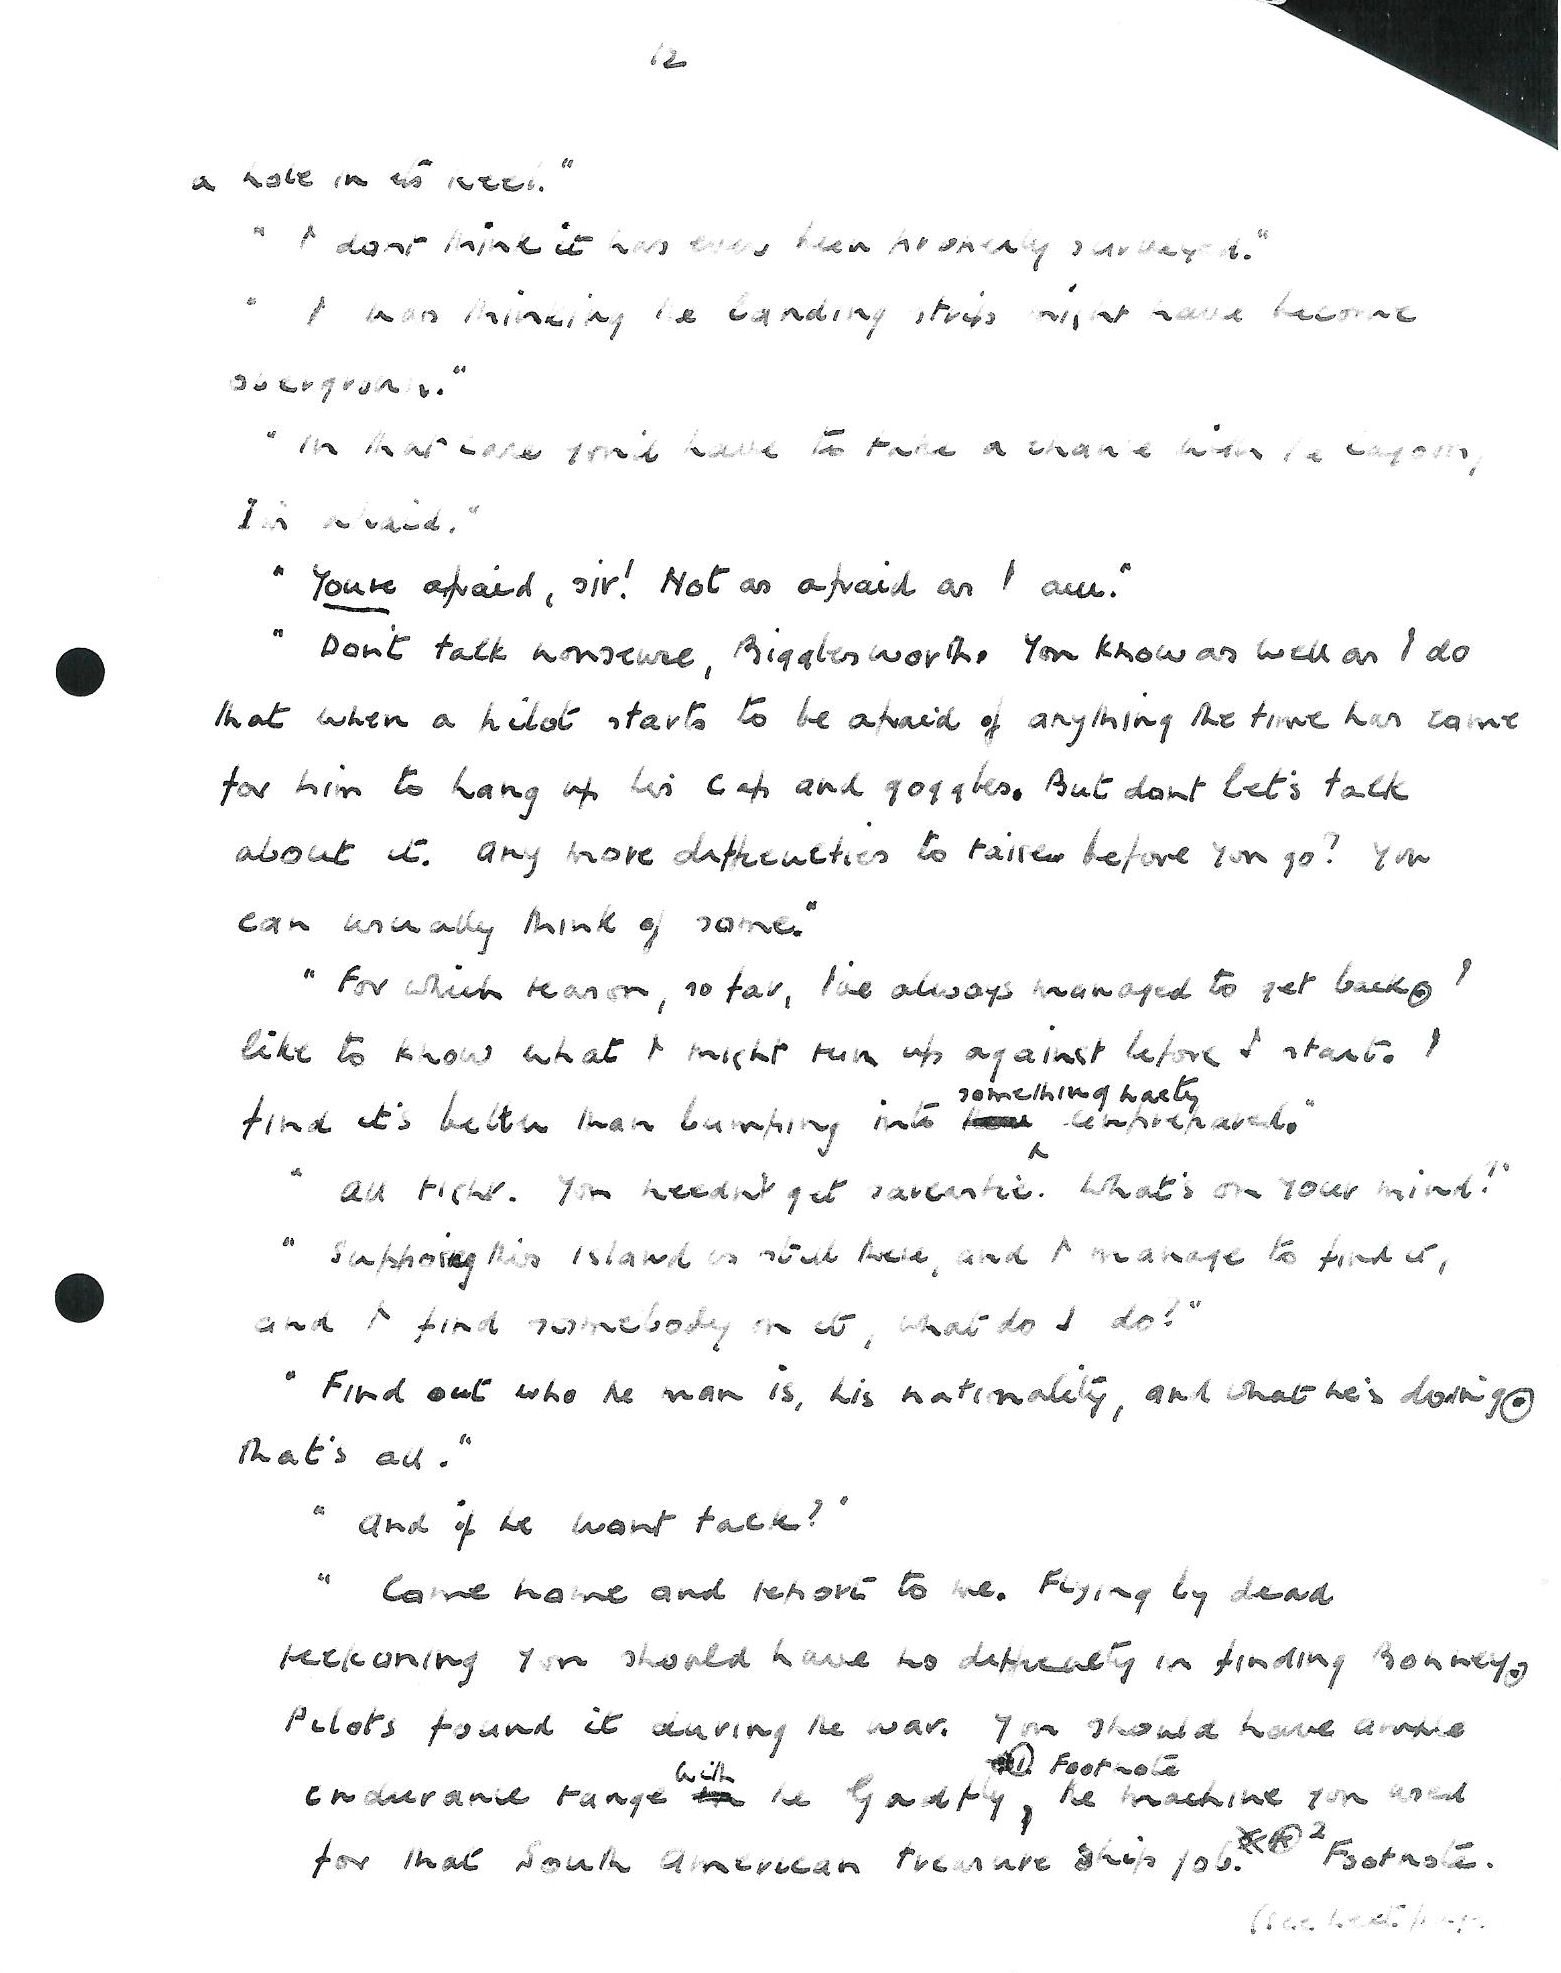 12
a hole in its keel."
" I dont think it has ever been properly surveyed."
" I was thinking the landing strip might have become
overgrown."
" In that case you'd have to take a chance with the lagoon,
I'm afraid."
" Youre afraid, sir! Not as afraid as I am."
" Don't talk nonsense, Bigglesworth. You know as well as I do
that when a pilot starts to be afraid of anything the time has come
for him to hang up his cap and goggles. But dont let's talk
about it. Any more difficulties to raise before you go? You
can usually think of some."
" For which reason, so far, I've always managed to get back. I
like to know what I might run up against before I start. I
something nasty
find it's better than bumping into unprepared."
" All right. You needn't get sarcastic. What's on your mind?"
" Supposing this island is still there, and I manage to find it,
and I find somebody on it, what do I do?"
" Find out who the man is, his nationality, and what he's doing.
that's all."
" And if he wont talk?"
" Come home and report to me. Flying by dead
reckoning you should have no difficulty in finding Bonney.
Pilots found it during the war. You should have ample
with 1 Footnote
endurance range in the Gadfly, the machine you used
for that South American treasure ship job. 2 Footnote.
(see next page